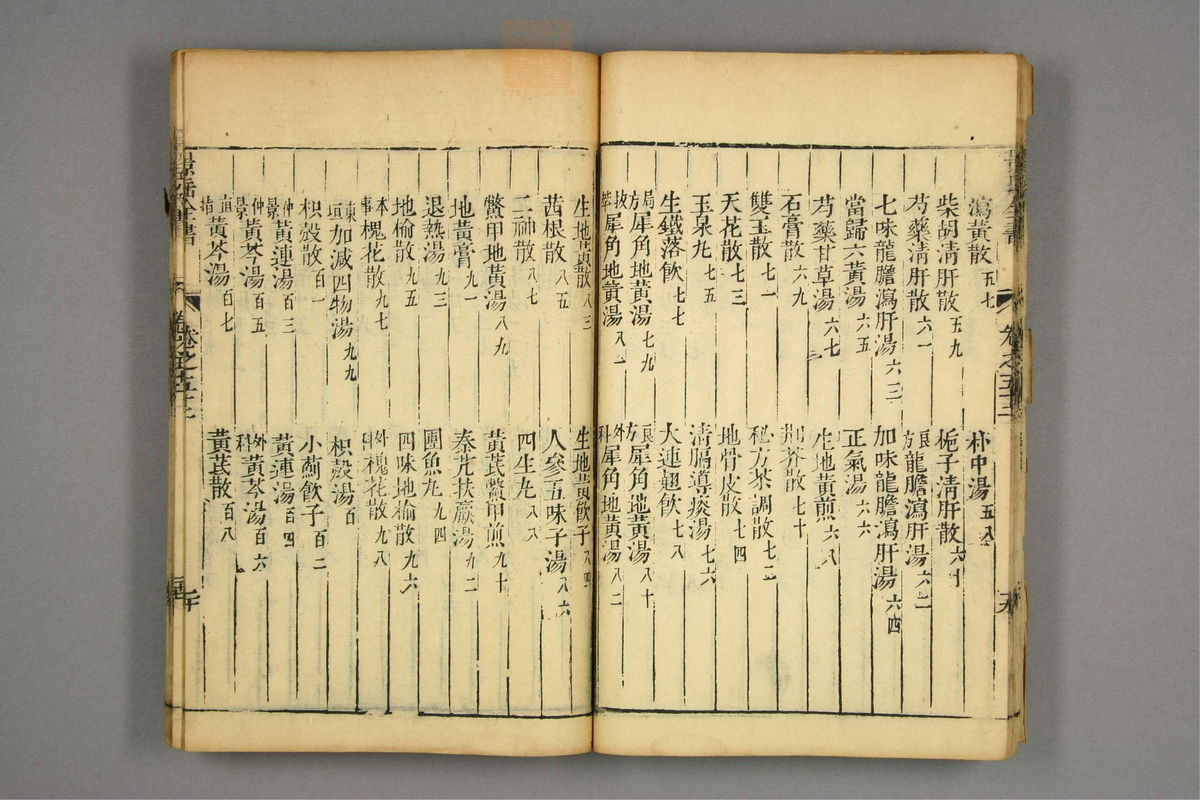 瀉黃散五七 朴中湯五八
柴胡清肝散五九 梔子清肝散六十
芍藥清肝散六一 良方龍膽瀉肝湯六二
七味龍膽瀉肝湯六三 加味龍膽瀉肝湯六四
當歸六黃湯六五 正氣湯六六
芍藥甘草湯六七 生地黃煎六八
石膏散六九 荆芥散七十
雙玉散七一 秘方茶調散七二
天花散七三 地骨皮散七四
玉泉丸七五 清膈導痰湯七六
生鐵落飲七七 大連翹飲七八
局方犀角地黃湯七九 良方犀角地黃湯八十
拔萃犀角地黃湯八一 外科犀角地黃湯八二
景岳全書 卷之五十七
生地黃散八三 生地黃飲子八四
茜根散八五 人參五味子湯八六
二神散八七 四生丸八八
鱉甲地黃湯八九 黃芪鱉甲煎九十
地黃膏九一 秦艽扶羸湯九二
退熱湯九三 團魚丸九四
地榆散九五 四味地榆散九六
本事槐花散九七 外科槐花散九八
東垣加減四物湯九九 枳殼湯百
枳殼散百一 小薊飲子百二
仲景黃連湯百三 黃連湯百四
仲景黃芩湯百五 外科黃芩湯百六
直指黃芩湯百七 黃芪散百八